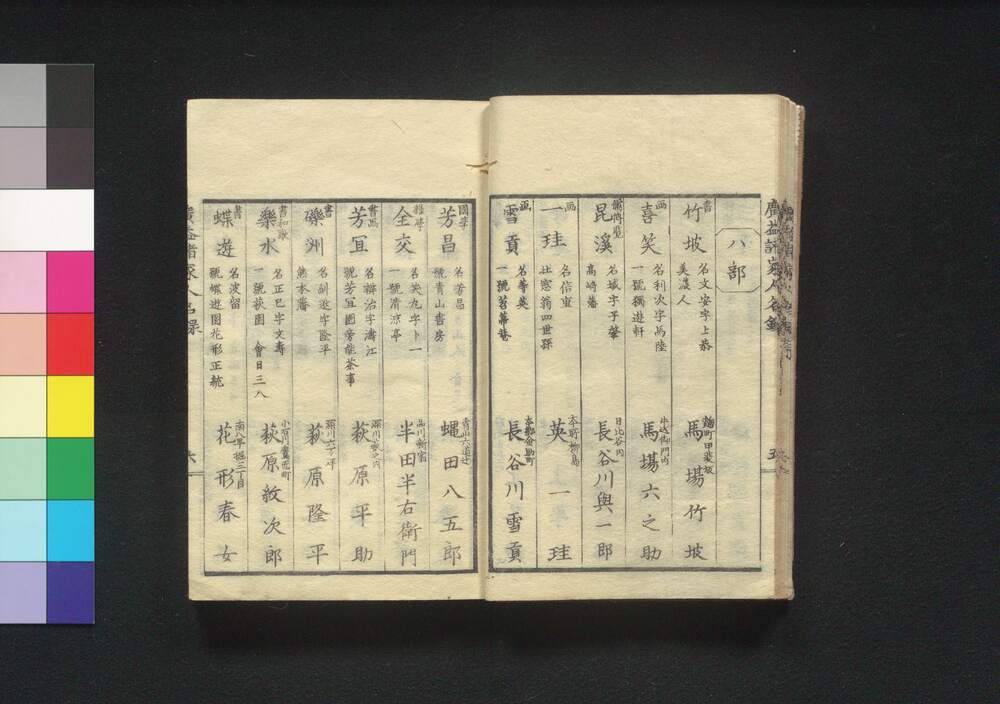 廣益諸家人名録
ハ部
書 竹坡 名文安字上恭 美濃人 麹町甲斐坂 馬場竹坡
画 喜笑 名利次字馬陸 一號獨遊軒 牛込御門内 馬場六之助
昆溪 名域字子肇 高崎藩 日比谷内 長谷川與一郎
画 一珪 名信重 北窓翁四世孫 本所柳島 英一珪
画 雪貢 名等英 一號茗幕菴 長谷川雪貢
國學 芳昌 名芳昌 號青山書房 青山六道辻 蝿田八五郎
雜学 全交 名笑九字卜一 一號清涼亭 品川新宿 半田半右衛門
書画 芳宜 名辦治字濤江 號芳宜園旁能茶事 萩原平助
書 磯洲 名訓遊字隆平 熊本藩 深川六万坪 萩原隆平
書和歌 樂水 名正巳字文壽 一號萩園 會日三八 小石川鷹匠町 萩原紋次郎
書 蝶遊 名波留 號蝶遊園花形正統 南八丁堀三丁目 花形春女
廣益諸家人名録
六